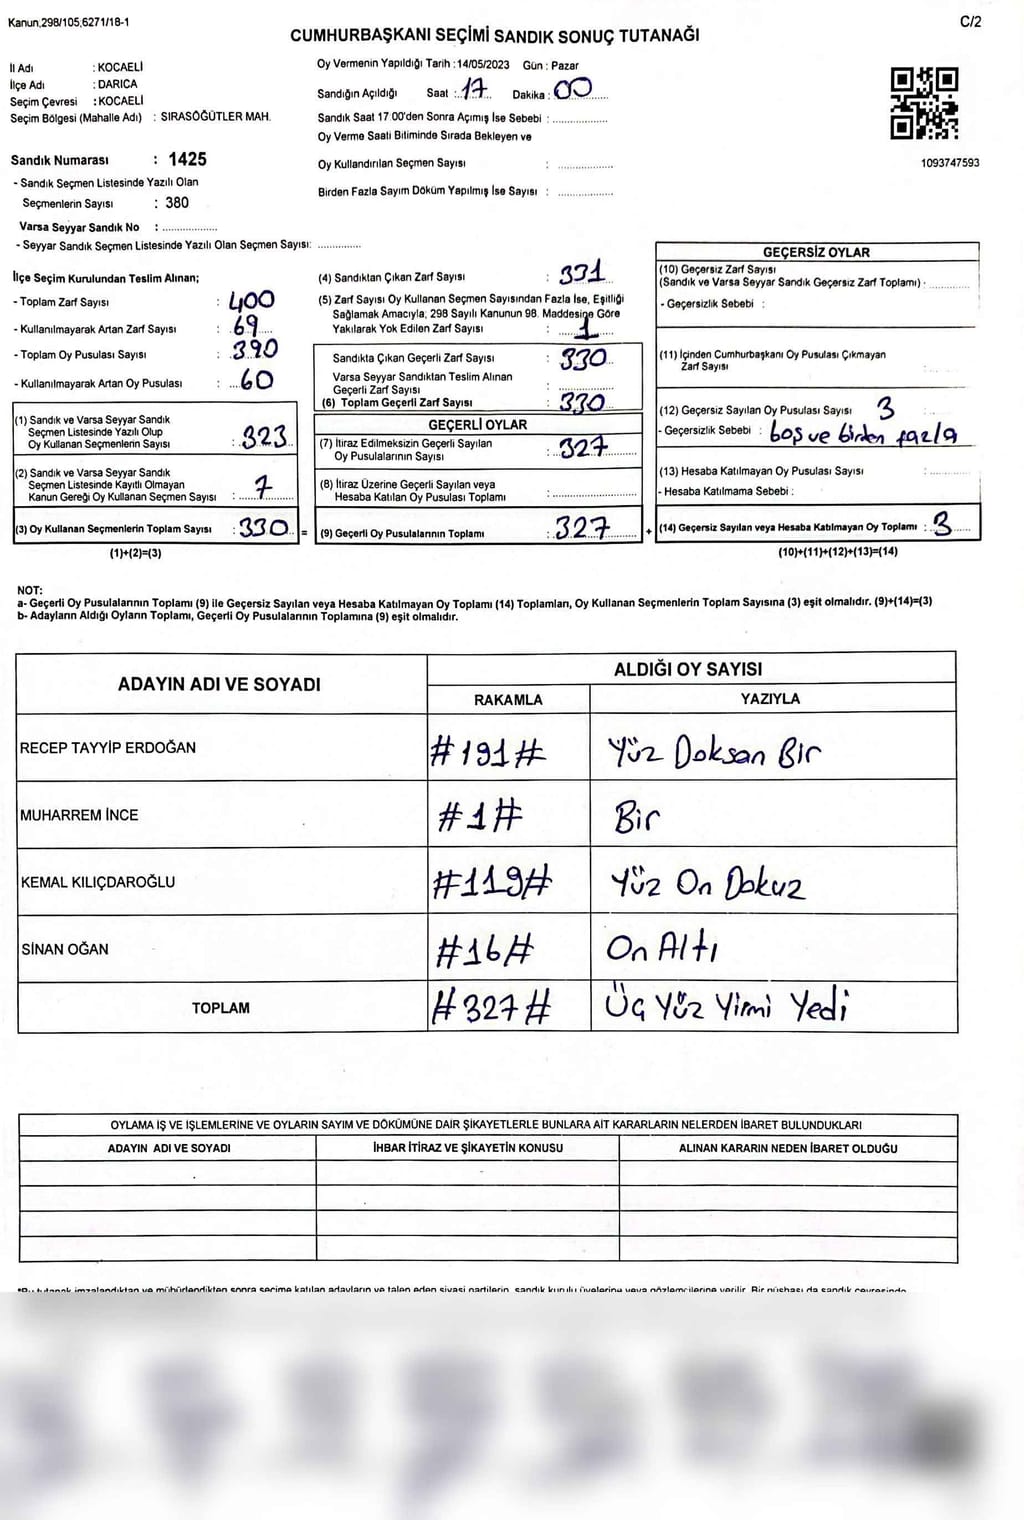 Kanun,298/105,6271/18-1
C/2
CUMHURBAŞKANI SEÇİMİ SANDIK SONUÇ TUTANAĞI
İl Adı : KOCAELİ
İlçe Adı : DARICA
Seçim Çevresi : KOCAELİ
Seçim Bölgesi (Mahalle Adı) : SIRASÖĞÜTLER MAH.
Oy Vermenin Yapıldığı Tarih : 14/05/2023 Gün : Pazar
Sandığın Açıldığı Saat : 17 Dakika : 00
Sandık Saat 17:00'den Sonra Açımış İse Sebebi :
Oy Verme Saati Bitiminde Sırada Bekleyen ve
Oy Kullandırılan Seçmen Sayısı :
Birden Fazla Sayım Döküm Yapılmış İse Sayısı :
1093747593
Sandık Numarası : 1425
- Sandık Seçmen Listesinde Yazılı Olan
Seçmenlerin Sayısı : 380
Varsa Seyyar Sandık No :
- Seyyar Sandık Seçmen Listesinde Yazılı Olan Seçmen Sayısı:
İlçe Seçim Kurulundan Teslim Alınan;
- Toplam Zarf Sayısı : 400
- Kullanılmayarak Artan Zarf Sayısı : 69
- Toplam Oy Pusulası Sayısı : 390
- Kullanılmayarak Artan Oy Pusulası : 60
(1) Sandık ve Varsa Seyyar Sandık
Seçmen Listesinde Yazılı Olup
Oy Kullanan Seçmenlerin Sayısı : 323
(2) Sandık ve Varsa Seyyar Sandık
Seçmen Listesinde Kayıtlı Olmayan
Kanun Gereği Oy Kullanan Seçmen Sayısı : 7
(3) Oy Kullanan Seçmenlerin Toplam Sayısı : 330 =
(1)+(2)=(3)
(4) Sandıktan Çıkan Zarf Sayısı : 331
(5) Zarf Sayısı Oy Kullanan Seçmen Sayısından Fazla İse, Eşitliği
Sağlamak Amacıyla; 298 Sayılı Kanunun 98. Maddesine Göre
Yakılarak Yok Edilen Zarf Sayısı : 1
Sandıkta Çıkan Geçerli Zarf Sayısı : 330
Varsa Seyyar Sandıktan Teslim Alınan
Geçerli Zarf Sayısı :
(6) Toplam Geçerli Zarf Sayısı : 330
GEÇERLİ OYLAR
(7) İtiraz Edilmeksizin Geçerli Sayılan
Oy Pusulalarının Sayısı : 327
(8) İtiraz Üzerine Geçerli Sayılan veya
Hesaba Katılan Oy Pusulası Toplamı :
(9) Geçerli Oy Pusulalarının Toplamı : 327 +
GEÇERSİZ OYLAR
(10) Geçersiz Zarf Sayısı
(Sandık ve Varsa Seyyar Sandık Geçersiz Zarf Toplamı) :
- Geçersizlik Sebebi :
(11) İçinden Cumhurbaşkanı Oy Pusulası Çıkmayan
Zarf Sayısı :
(12) Geçersiz Sayılan Oy Pusulası Sayısı 3 :
- Geçersizlik Sebebi : boş ve birden fazla
(13) Hesaba Katılmayan Oy Pusulası Sayısı :
- Hesaba Katılmama Sebebi :
(14) Geçersiz Sayılan veya Hesaba Katılmayan Oy Toplamı : 3
(10)+(11)+(12)+(13)=(14)
NOT:
a- Geçerli Oy Pusulalarının Toplamı (9) ile Geçersiz Sayılan veya Hesaba Katılmayan Oy Toplamı (14) Toplamları, Oy Kullanan Seçmenlerin Toplam Sayısına (3) eşit olmalıdır. (9)+(14)=(3)
b- Adayların Aldığı Oyların Toplamı, Geçerli Oy Pusulalarının Toplamına (9) eşit olmalıdır.
ADAYIN ADI VE SOYADI
ALDIĞI OY SAYISI
RAKAMLA YAZIYLA
RECEP TAYYİP ERDOĞAN #191# Yüz Doksan Bir
MUHARREM İNCE #1# Bir
KEMAL KILIÇDAROĞLU #119# Yüz On Dokuz
SİNAN OĞAN #16# On Altı
TOPLAM #327# Üç Yüz Yirmi Yedi
OYLAMA İŞ VE İŞLEMLERİNE VE OYLARIN SAYIM VE DÖKÜMÜNE DAİR ŞİKAYETLERLE BUNLARA AİT KARARLARIN NELERDEN İBARET BULUNDUKLARI
ADAYIN ADI VE SOYADI İHBAR İTİRAZ VE ŞİKAYETİN KONUSU ALINAN KARARIN NEDEN İBARET OLDUĞU
*Bu tutanak imzalandıktan ve mühürlendikten sonra seçime katılan adayların ve talep eden siyasi partilerin, sandık kurulu üyelerine veya gözlemcilerine verilir. Bir nüshası da sandık çevresinde